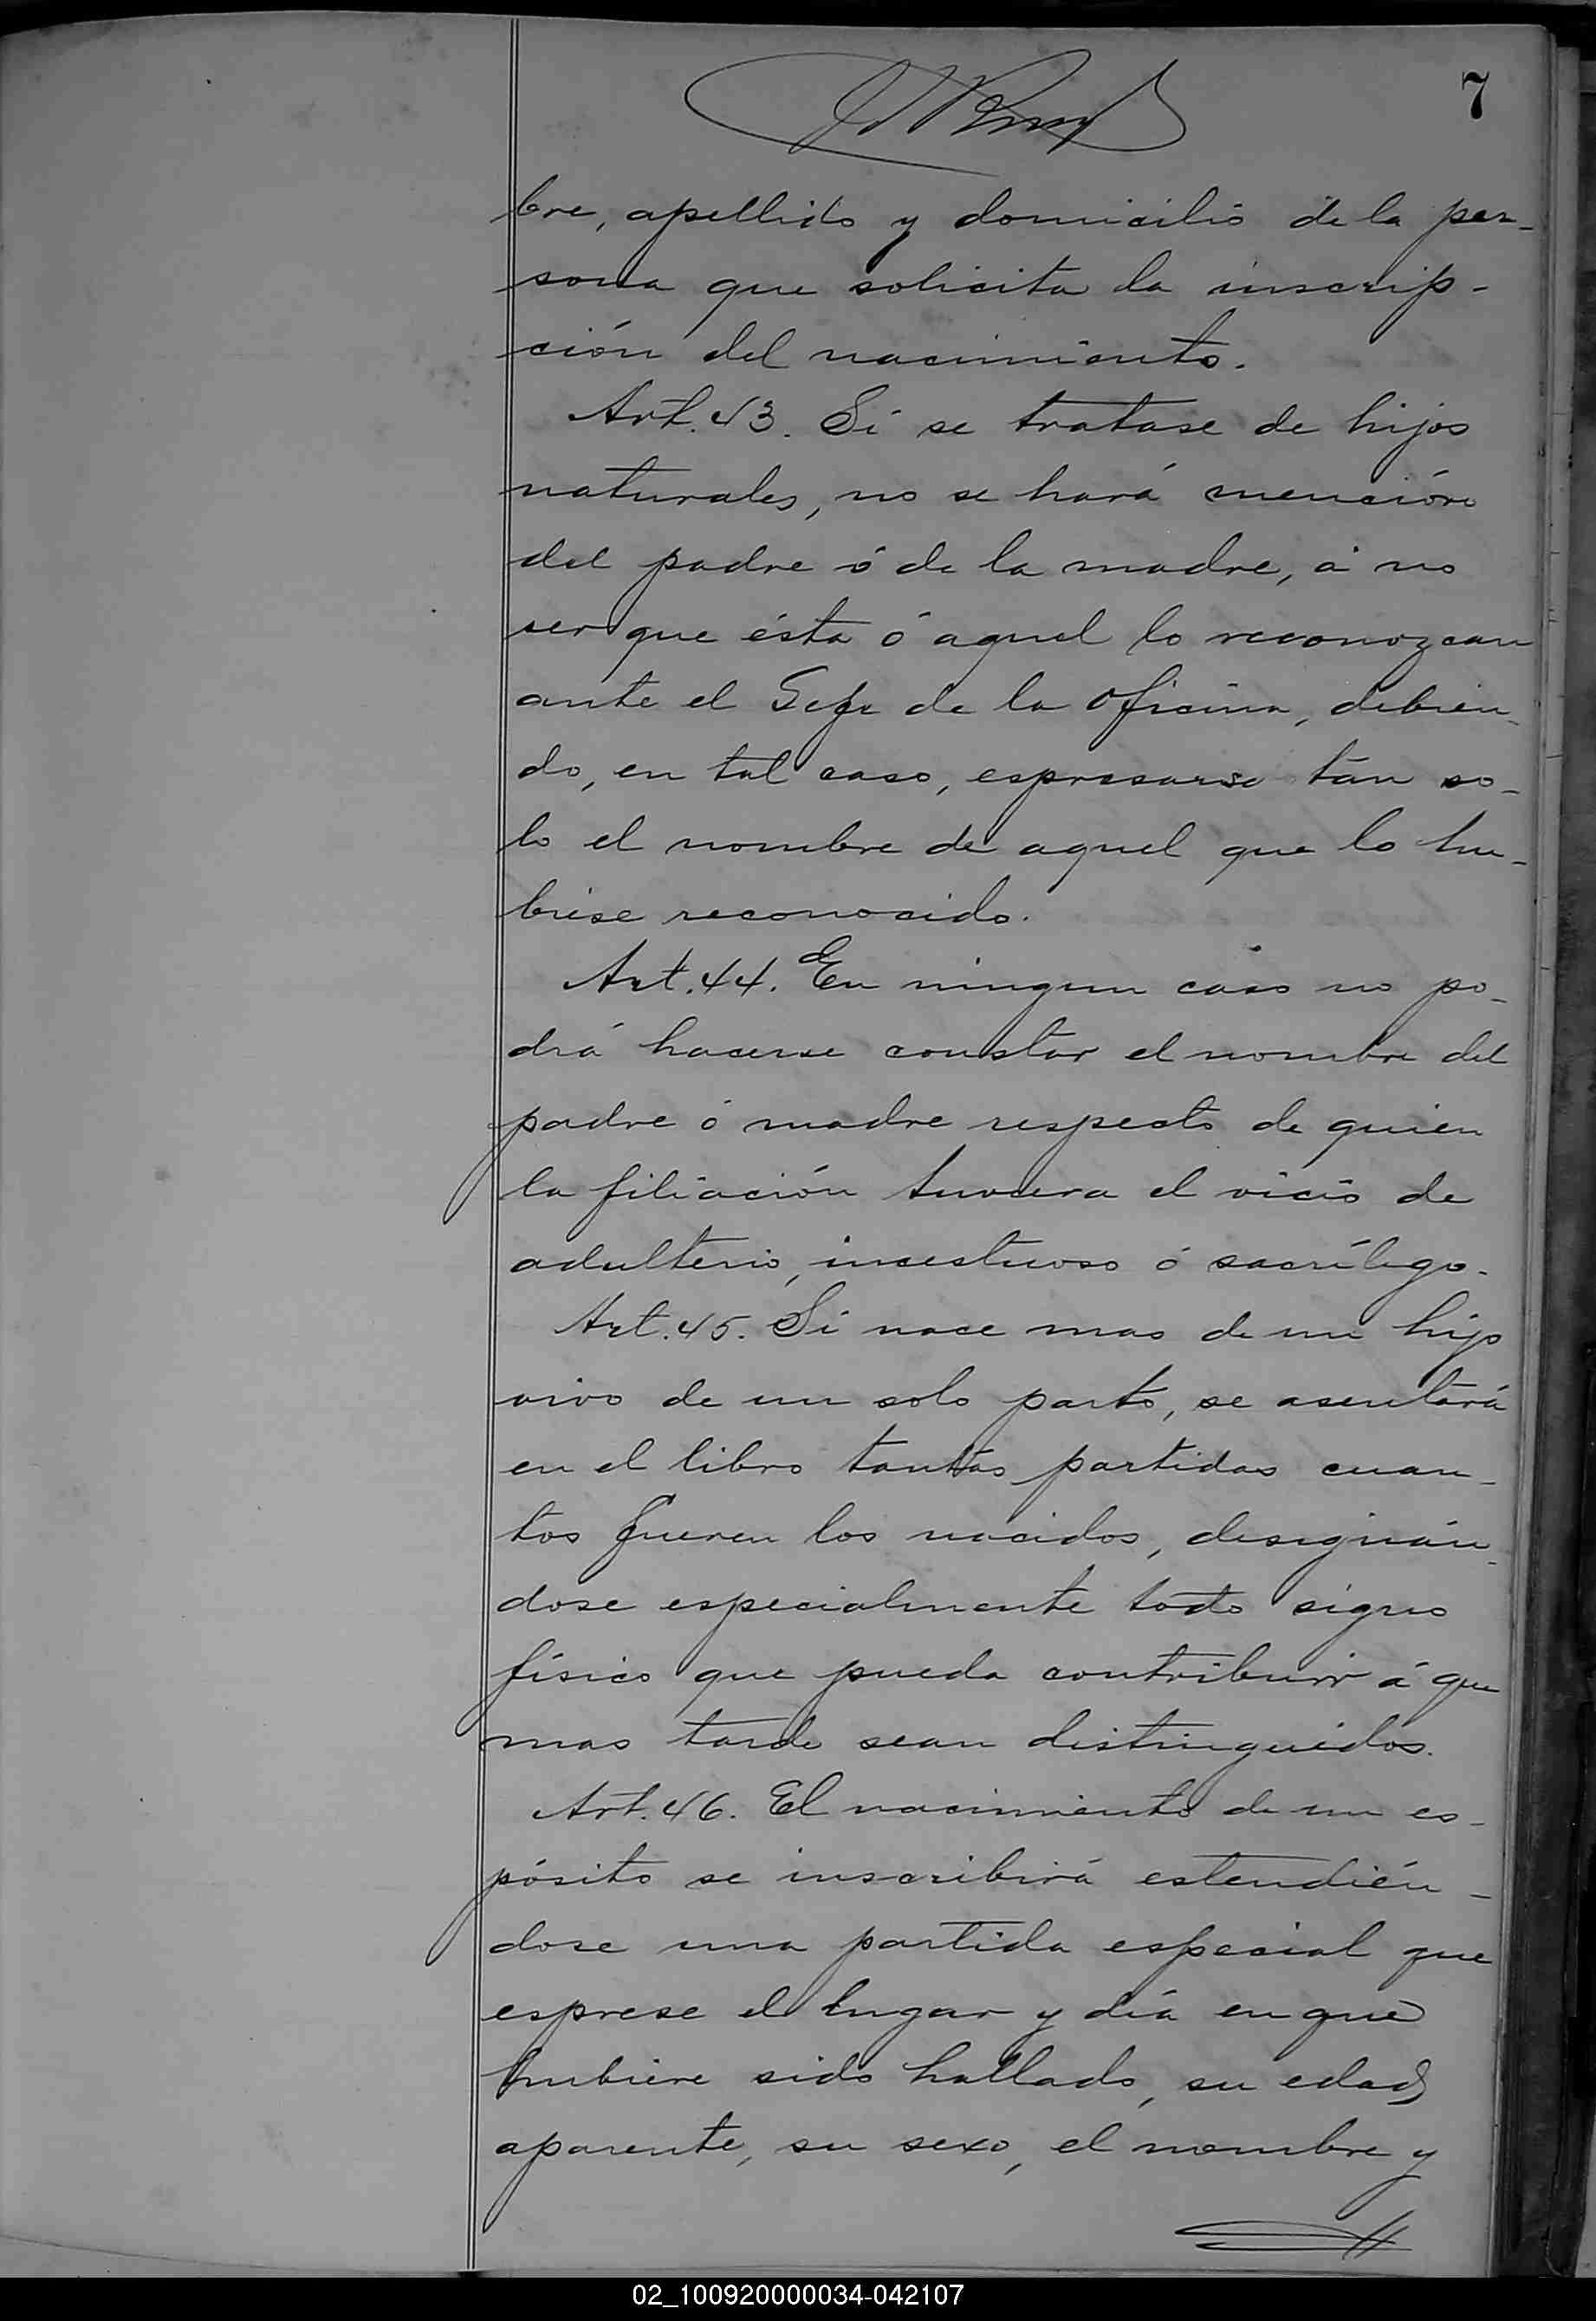 7
bre, apellido y domicilio de la per-
sona que solicita la inscrip-
ción del nacimiento.
Art. 43. Si se tratase de hijos
naturales, no se hará mención
del padre ó de la madre, á no
ser que ésta ó aquel lo reconozcan
ante el Gefe de la Oficina, debien-
do, en tal caso, espresarse tán so-
lo el nombre de aquel que lo hu-
biese reconocido.
Art. 44. En ningun caso no po-
drá hacerse constar el nombre del
padre ó madre respecto de quien
la filiación tuviera el vicio de
adulterio, incestuoso ó sacrílego.
Art. 45. Si nace mas de un hijo
vivo de un solo parto, se asentará
en el libro tantas partidas cuan-
tos fueren los nacidos, designán-
dose especialmente todo signo
físico que pueda contribuir á que
mas tarde sean distinguidos.
Art. 46. El nacimiento de un es-
pósito se inscribirá estendién-
dose una partida especial que
esprese el lugar y día en que
hubiere sido hallado, su edad
aparente, su sexo, el nombre y
02_100920000034-042107